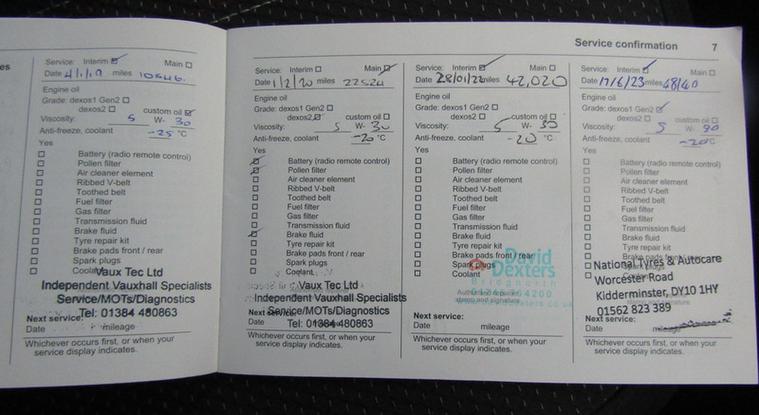 Service confirmation 7
es
Service: Interim Main
Date 4/1/19 miles
Engine oil
Grade: dexos1 Gen2
dexos2 custom oil
Viscosity: 5 W- 30
Anti-freeze, coolant -25 °C
Yes
Battery (radio remote control)
Pollen filter
Air cleaner element
Ribbed V-belt
Toothed belt
Fuel filter
Gas filter
Transmission fluid
Brake fluid
Tyre repair kit
Brake pads front / rear
Spark plugs
Coolant
Vaux Tec Ltd
Independent Vauxhall Specialists
Service/MOTs/Diagnostics
Tel: 01384 480863
Next service:
Date mileage
Whichever occurs first, or when your
service display indicates.
Service: Interim Main
Date 1/2/20 miles 22524
Engine oil
Grade: dexos1 Gen2
dexos2 custom oil
Viscosity: 5 W- 30
Anti-freeze, coolant -20 °C
Yes
Battery (radio remote control)
Pollen filter
Air cleaner element
Ribbed V-belt
Toothed belt
Fuel filter
Gas filter
Transmission fluid
Brake fluid
Tyre repair kit
Brake pads front / rear
Spark plugs
Coolant
Vaux Tec Ltd
Independent Vauxhall Specialists
Service/MOTs/Diagnostics
Tel: 01384 480863
Next service:
Date
Whichever occurs first, or when your
service display indicates.
Service: Interim Main
Date 28/01/22 miles 42,020
Engine oil
Grade: dexos1 Gen2
dexos2 custom oil
Viscosity: 5 W- 30
Anti-freeze, coolant -20 °C
Yes
Battery (radio remote control)
Pollen filter
Air cleaner element
Ribbed V-belt
Toothed belt
Fuel filter
Gas filter
Transmission fluid
Brake fluid
Tyre repair kit
Brake pads front / rear
Spark plugs
Coolant
David
Dexters
Bridgnorth
stamp and signature
Next service:
Date mileage
Whichever occurs first, or when your
service display indicates.
Service: Interim Main
Date 17/6/23 miles 48140
Engine oil
Grade: dexos1 Gen2
dexos2 custom oil
Viscosity: 5 W- 30
Anti-freeze, coolant -20°C
Yes
Battery (radio remote control)
Pollen filter
Air cleaner element
Ribbed V-belt
Toothed belt
Fuel filter
Gas filter
Transmission fluid
Brake fluid
Tyre repair kit
Brake pads front / rear
Spark plugs
Coolant
National Tyres & Autocare
Worcester Road
Kidderminster, DY10 1HY
01562 823 389
Next service:
Date
Whichever occurs first, or when your
service display indicates.